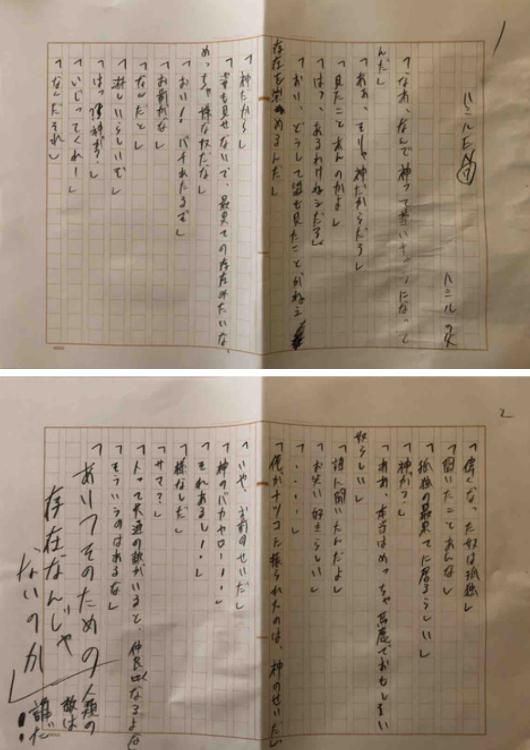 1
ハニルビ㊉
ハニルの父
「なあ、なんで神って尊いヤツになって
んだ」
「ああ、そりゃ神だからだろ」
「見たことあんのかよ」
「はっ、あるわけねえだろ」
「おい、どうして姿も見たことがねえ
存在を崇めるんだ」
「神だから」
「姿も見せないで、最果ての存在みたいな、
めっちゃ嫌な奴だな」
「おい!バチあたるぞ」
「お前がな」
「なんだと」
「淋しいらしいぞ」
「はっ?神が?」
「いじってくれ!」
「なんだそれ」
2
「偉くなった奴は孤独」
「聞いたことあんな」
「孤独の最果てに居るらしい」
「神が?」
「ああ、本当はめっちゃ馬鹿でおもしろい
奴らしい」
「誰に聞いたんだよ」
「お笑い好きらしい」
「・・・・」
「俺がナツコに振られたのは、神のせいだ」
「いや、お前のせいだ」
「神のバカヤロー!!」
「それあるし!!」
「様なしだ」
「サマ?」
「人って共通の敵がいると、仲良くなるよな」
「そういうのはあるな」
「あいつそのための
存在なんじゃ
ないのか」
人類の
敵は
誰だ
!